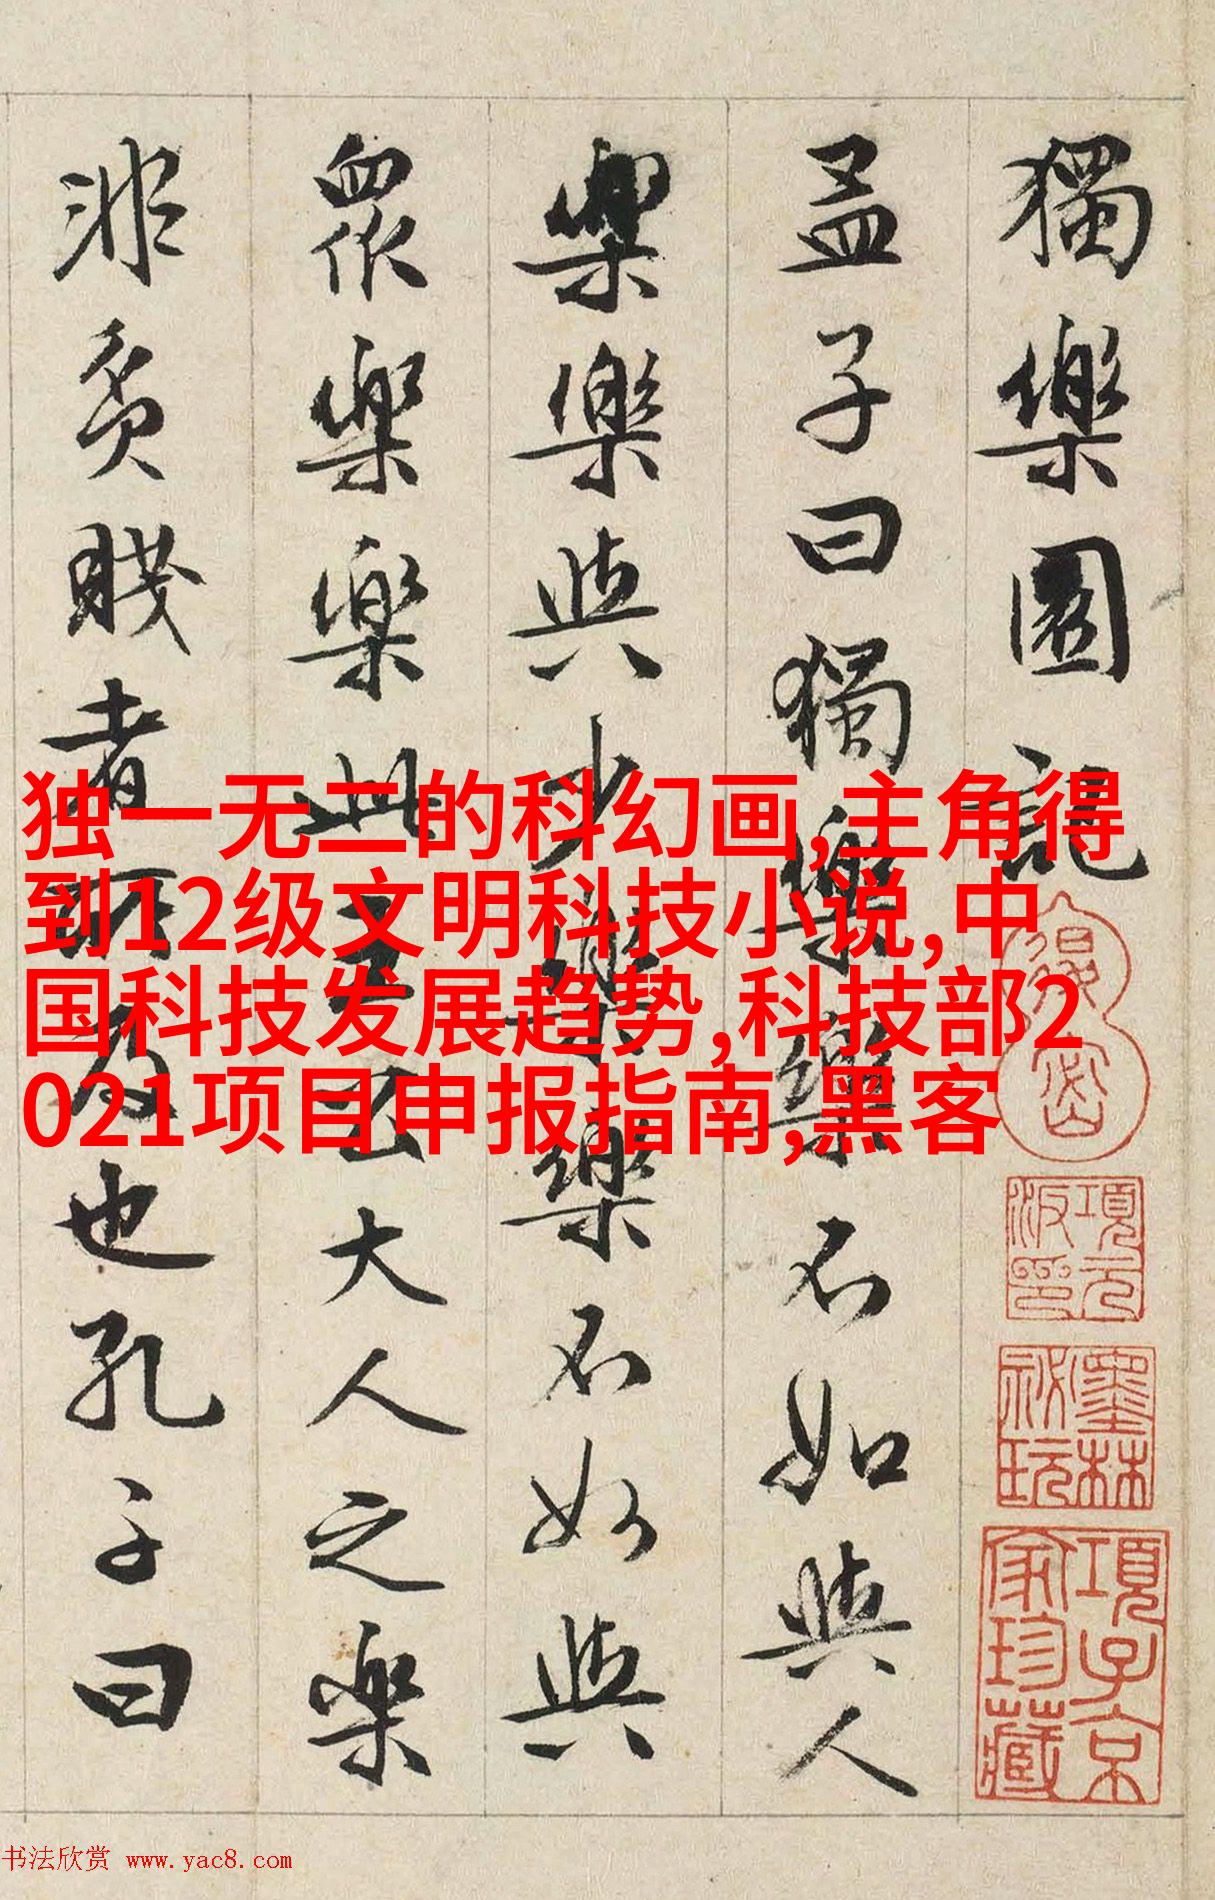 獨樂園記
孟子曰獨樂樂不如與人
樂樂與少樂樂不如與
眾樂樂此王公大人之樂
非貧賤者所及也孔子曰
独一无二的科幻画,主角得
到12级文明科技小说,中
国科技发展趋势,科技部2
021项目申报指南,黑客
退密
項元汴印
墨林祕玩
項子京家珍藏
书法欣赏 www.yac8.com